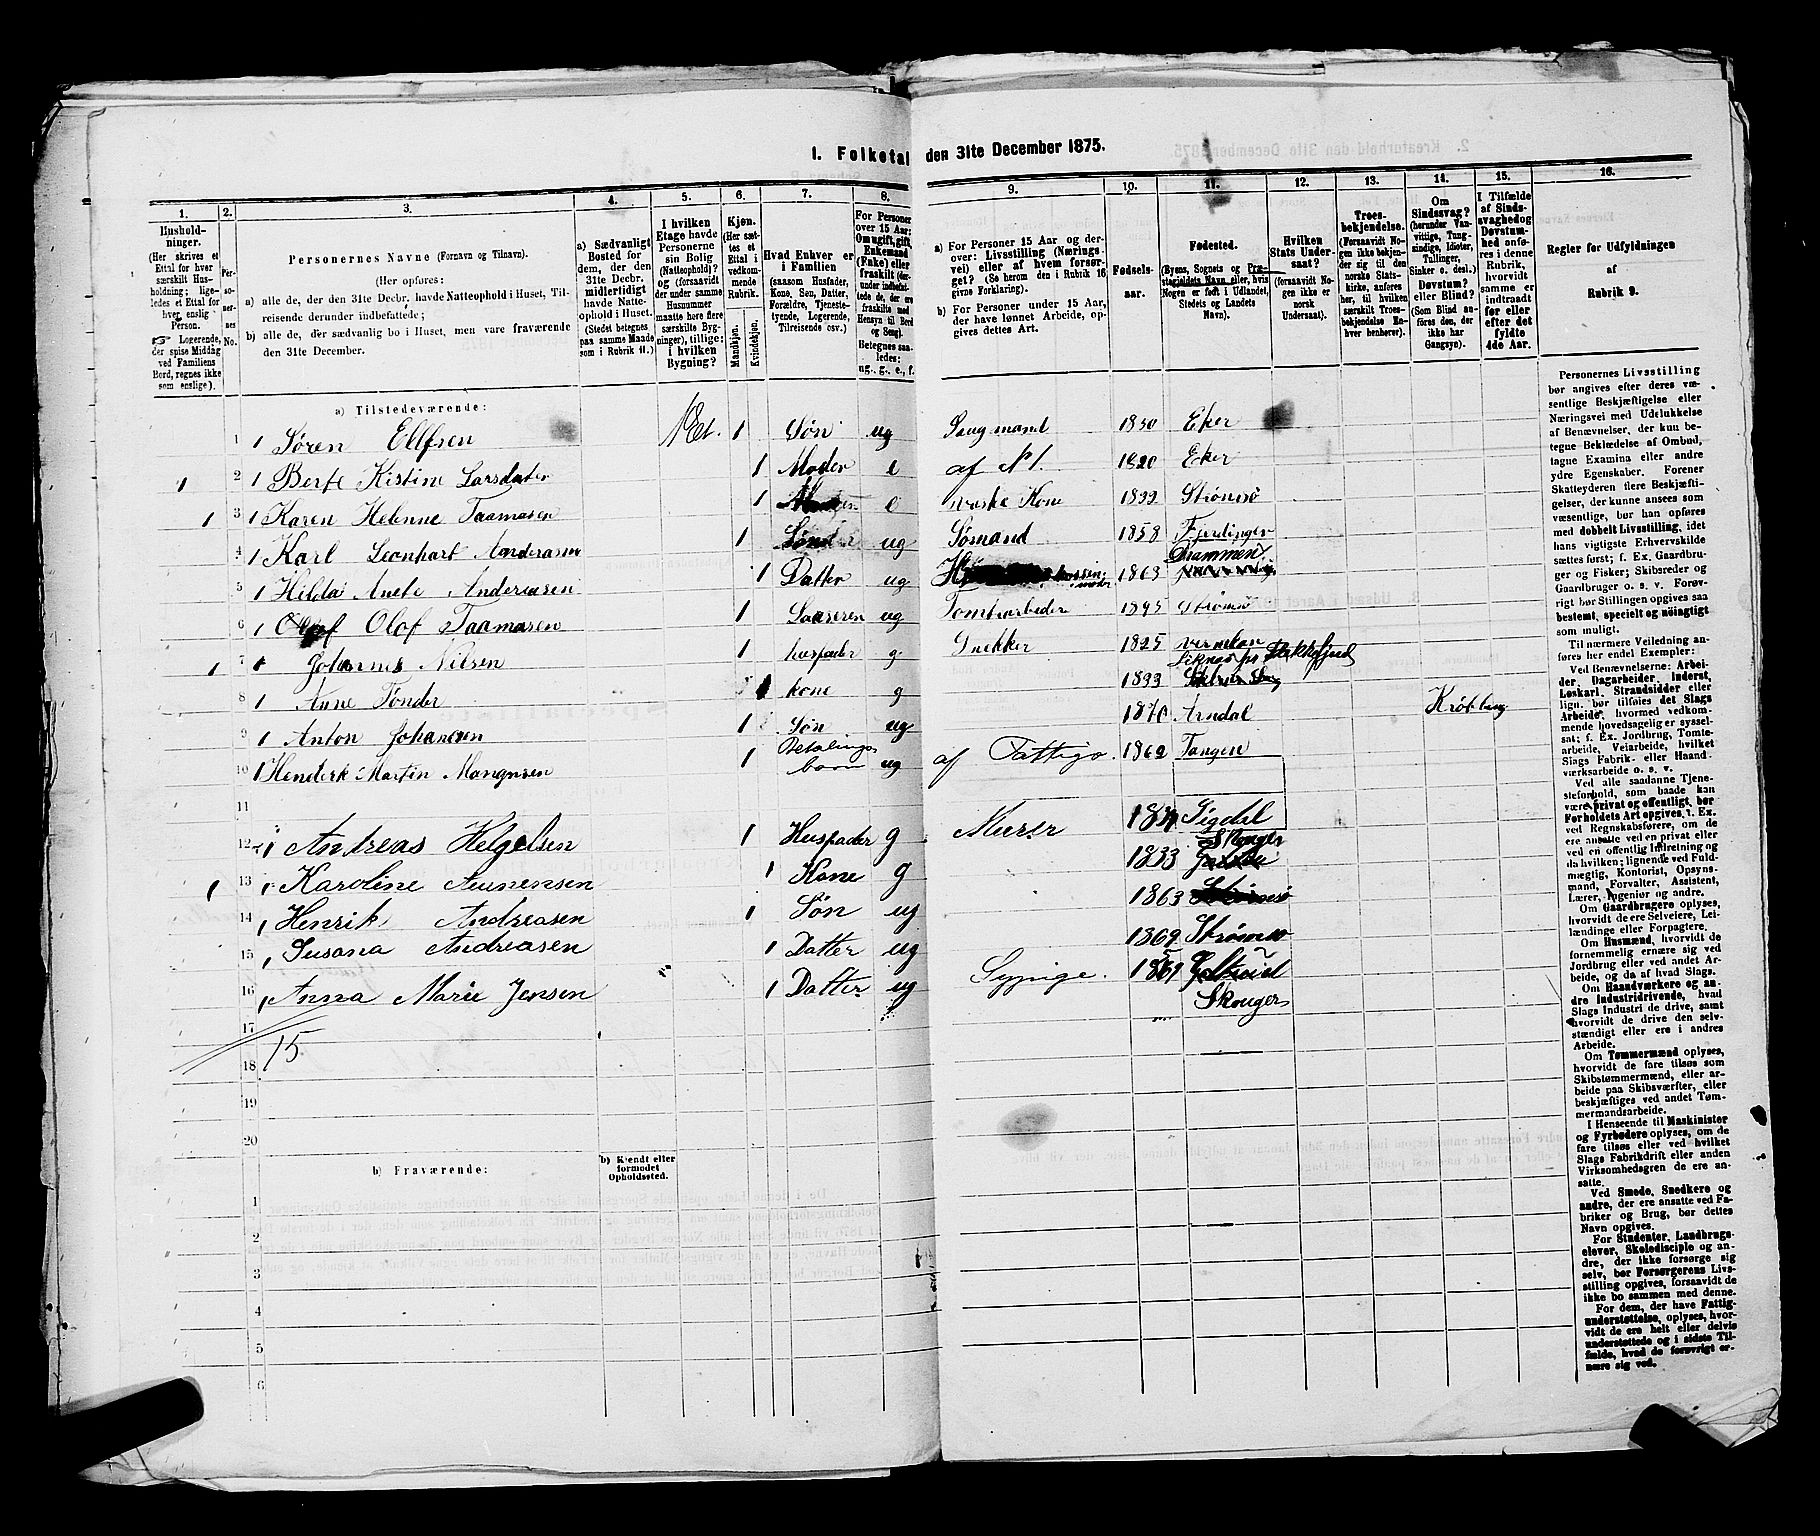 1. Folketal den 31te December 1875.
1. 2. 3. 4. 5. 6. 7. 8. 9. 10. 11. 12. 13. 14. 15. 16.
Husholdninger.
(Her skrives et Ettal for hver særskilt Husholdning; ligeledes et Ettal for hver enslig Person.
☞ Logerende, der spise Middag ved Familiens Bord, regnes ikke som enslige).
Personernes No.
Personernes Navne (Fornavn og Tilnavn).
(Her opføres:
a) alle de, der den 31te Decbr. havde Natteophold i Huset, Tilreisende derunder indbefattede;
b) alle de, der sædvanlig bo i Huset, men vare fraværende den 31te December.
a) Sædvanligt Bosted for dem, der den 31te Decbr. midlertidigt havde Natteophold i Huset. (Stedet betegnes paa samme Maade som i Rubrik 11.)
I hvilken Etage havde Personerne sin Bolig (Natteophold)? og (forsaavidt der under samme Husnummer maatte høre flere særskilte Bygninger), tillige: i hvilken Bygning?
Kjøn. (Her sættes et Ettal i vedkommende Rubrik.
Mandkjøn.
Kvindekjøn.
Hvad Enhver er i Familien
(saasom Husfader, Kone, Søn, Datter, Forældre, Tjenestetyende, Logerende, Tilreisende osv.)
For Personer over 15 Aar: Om ugift, gift, Enkemand (Enke) eller fraskilt
Betegnes saaledes: ug., g., e., f.
a) For Personer 15 Aar og derover: Livsstilling (Næringsvei) eller af hvem forsørget? (Se herom den i Rubrik 16 givne Forklaring).
b) For Personer under 15 Aar, der have lønnet Arbeide, opgives dettes Art.
Fødselsaar.
Fødested.
(Byens, Sognets og Præstegjeldets Navn eller, hvis Nogen er født i Udlandet, Stedets og Landets Navn).
Hvilken Stats Undersaat?
(forsaavidt Nogen ikke er norsk Undersaat).
Troesbekjendelse.
(Forsaavidt Nogen ikke bekjender sig til den norske Statskirke, anføres her, til hvilken særskilt Troesbekjendelse Enhver henhører).
Om Sindssvag? (herunder Vanvittige, Tungsindige, Idioter, Tullinger, Sinker o. desl.) Døvstum? eller Blind? (Som Blind anføres den, der ikke har Gangsyn).
I Tilfælde af Sindssvaghed og Døvstumhed anføres i denne Rubrik, hvorvidt samme er indtraadt før eller efter det fyldte 4de Aar.
Regler for Udfyldningen af Rubrik 9.
a) Tilstedeværende:
1 1 Søren Ellefsen 1 Et. 1 Søn ug Saugmand 1850 Eker
1 2 1 Berte Kistine Larsdater 1 Moder e af N 1. 1820 Eker
1 3 1 Karen Helenne Taamasen 1 e vaske Kone 1833 Strømsø
4 1 Karl Leonhart Anderasen 1 Søn ug Sømand 1858 Fjerdingen
5 1 Hilda Anete Andereasen 1 Datter ug 1863 Drammen
6 1 Olof Taamasen 1 Loseren ug Tomtearbeder 1845 Strømsø
1 7 Johannes Nilsen 1 husfader g Snekker 1825
8 1 Anne Tønder 1 kone g 1833
9 1 Anton Johansen 1 Søn ug 1870 Arndal Krøbling
10 1 Henderk Martin Mangnsen 1 Betalings barn ug af Fattigv. 1862 Tangen
11
12 1 Andreas Helgelsen 1 Husfader g Murer 1834 Sigdal
1 13 1 Karoline Aunensen 1 Kone g 1833 Skouger
14 1 Henrik Andreasen 1 Søn ug 1863
15 1 Susana Andreasen 1 Datter ug 1869 Strømsø
16 1 Anna Marie Jensen 1 Datter ug Sypige. Skouger
17
18 15
19
20
b) Fraværende:
b) Kjendt eller formodet Opholdssted.
1
2
3
4
5
6
Personernes Livsstilling bør angives efter deres væsentlige Beskjæftigelse eller Næringsvei med Udelukkelse af Benævnelser, der kun betegne Beklædelse af Ombud, tagne Examina eller andre ydre Egenskaber. Forener Skatteyderen flere Beskjæftigelser, der kunne ansees som væsentlige, bør han opføres med dobbelt Livsstilling, idet hans vigtigste Erhvervskilde sættes først; f. Ex. Gaardbruger og Fisker; Skibsreder og Gaardbruger o. s. v. Forøvrigt bør Stillingen opgives saa bestemt, specielt og nøiagtigt som muligt.
Til nærmere Veiledning anføres her endel Exempler:
Ved Benævnelserne: Arbeider, Dagarbeider, Inderst, Løskarl, Strandsidder eller lign. bør tilføies det Slags Arbeide, hvormed vedkommende hovedsagelig er sysselsat; f. Ex. Jordbrug, Tomtearbeide, Veiarbeide, hvilket Slags Fabrik- eller Haandværksarbeide o. s. v.
Ved alle saadanne Tjenesteforhold, som baade kan være privat og offentligt, bør Forholdets Art opgives, f. Ex. ved Regnskabsførere, om de ere ansatte ved en privat eller ved en offentlig Indretning og da hvilken; lignende ved Fuldmægtig, Kontorist, Opsynsmand, Forvalter, Assistent, Lærer, Ingeniør og andre.
Om Gaardbrugere oplyses, hvorvidt de ere Selveiere, Leilændinge eller Forpagtere.
Om Husmænd, hvorvidt de fornemmelig ernære sig ved Jordbrug eller ved andet Arbeide, og da af hvad Slags.
Om Haandværkere og andre Industridrivende, hvad Slags Industri de drive, samt hvorvidt de drive den selvstændigt eller ere i andres Arbeide.
Om Tømmermænd oplyses, hvorvidt de fare tilsøs som Skibstømmermænd, eller arbeide paa Skibsværfter, eller beskjæftiges ved andet Tømmermandsarbeide.
I Henseende til Maskinister og Fyrbødere oplyses, om de fare tilsøs eller ved hvilket Slags Fabrikdrift eller anden Virksomhedsgren de ere ansatte.
Ved Smede, Snedkere og andre, der ere ansatte ved Fabriker og Brug, bør dettes Navn opgives.
For Studenter, Landbrugselever, Skoledisciple og andre, der ikke forsørge sig selv, bør Forsørgerens Livsstilling opgives, forsaavidt de ikke bo sammen med denne.
For dem, der have Fattigunderstøttelse, oplyses, hvorvidt de ere helt eller delvis understøttede og i sidste Tilfælde, hvad de forøvrigt ernære sig ved.